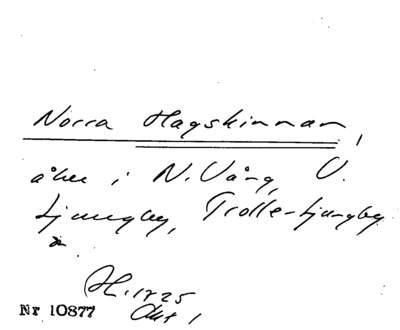 Norra Hagskinnan,
åker i N. Vång, V.
Ljungby, Trolle-Ljungby
H. 1725
Akt 1
Nr 10877